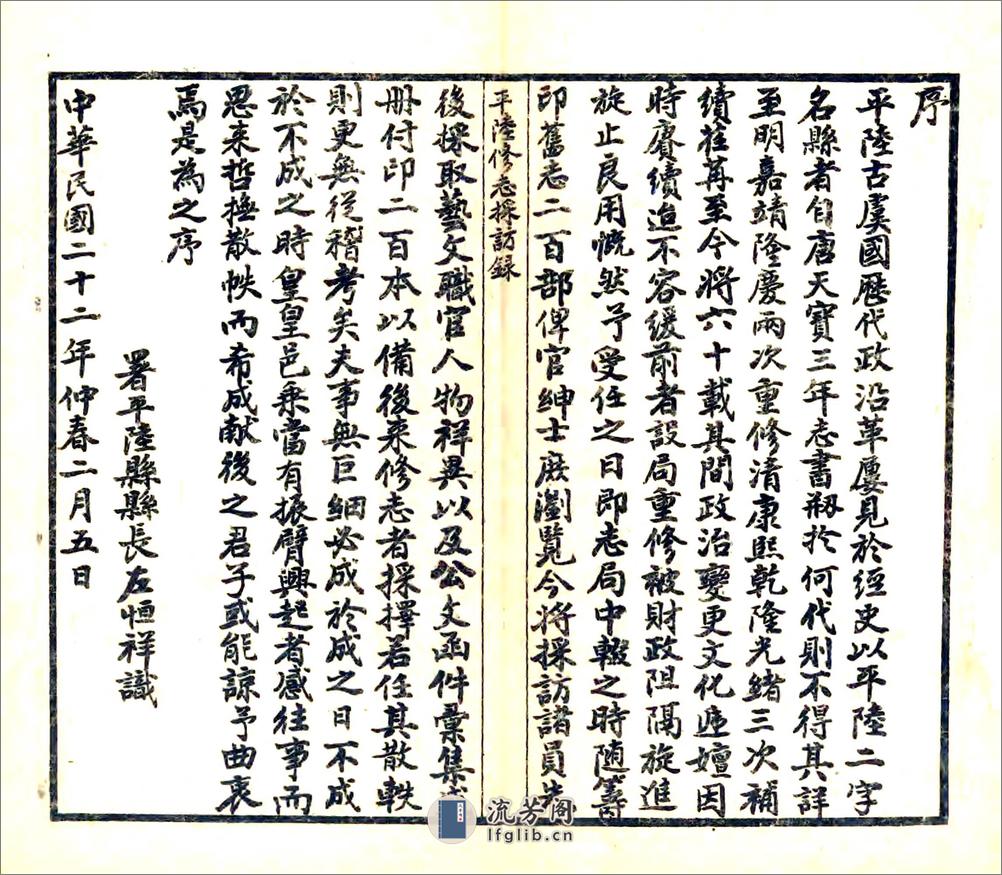 序
平陸古虞國歷代政沿革屢見於經史以平陸二字
名縣者自唐天寶三年志書刱於何代則不得其詳
至明嘉靖隆慶兩次重修清康熙乾隆光緒三次補
續荏苒至今將六十載其間政治變更文化遞嬗因
時賡續迨不容緩前者設局重修被財政阻隔旋進
旋止良用慨然予受任之日即志局中輟之時随籌
印舊志二百部俾官紳士庶瀏覽今將採訪諸員
平陸修志採訪録
後採取藝文職官人物祥異以及公文函件彙集
册付印二百本以備後來修志者採擇若任其散軼
則更無從稽考矣夫事無巨細必成於成之日不成
於不成之時皇皇邑乘當有振臂興起者感往事而
思來哲撫散帙而希成献後之君子或能諒予曲衷
焉是為之序
署平陸縣縣長左恒祥識
中華民國二十二年仲春二月五日
流芳阁
lfglib.cn